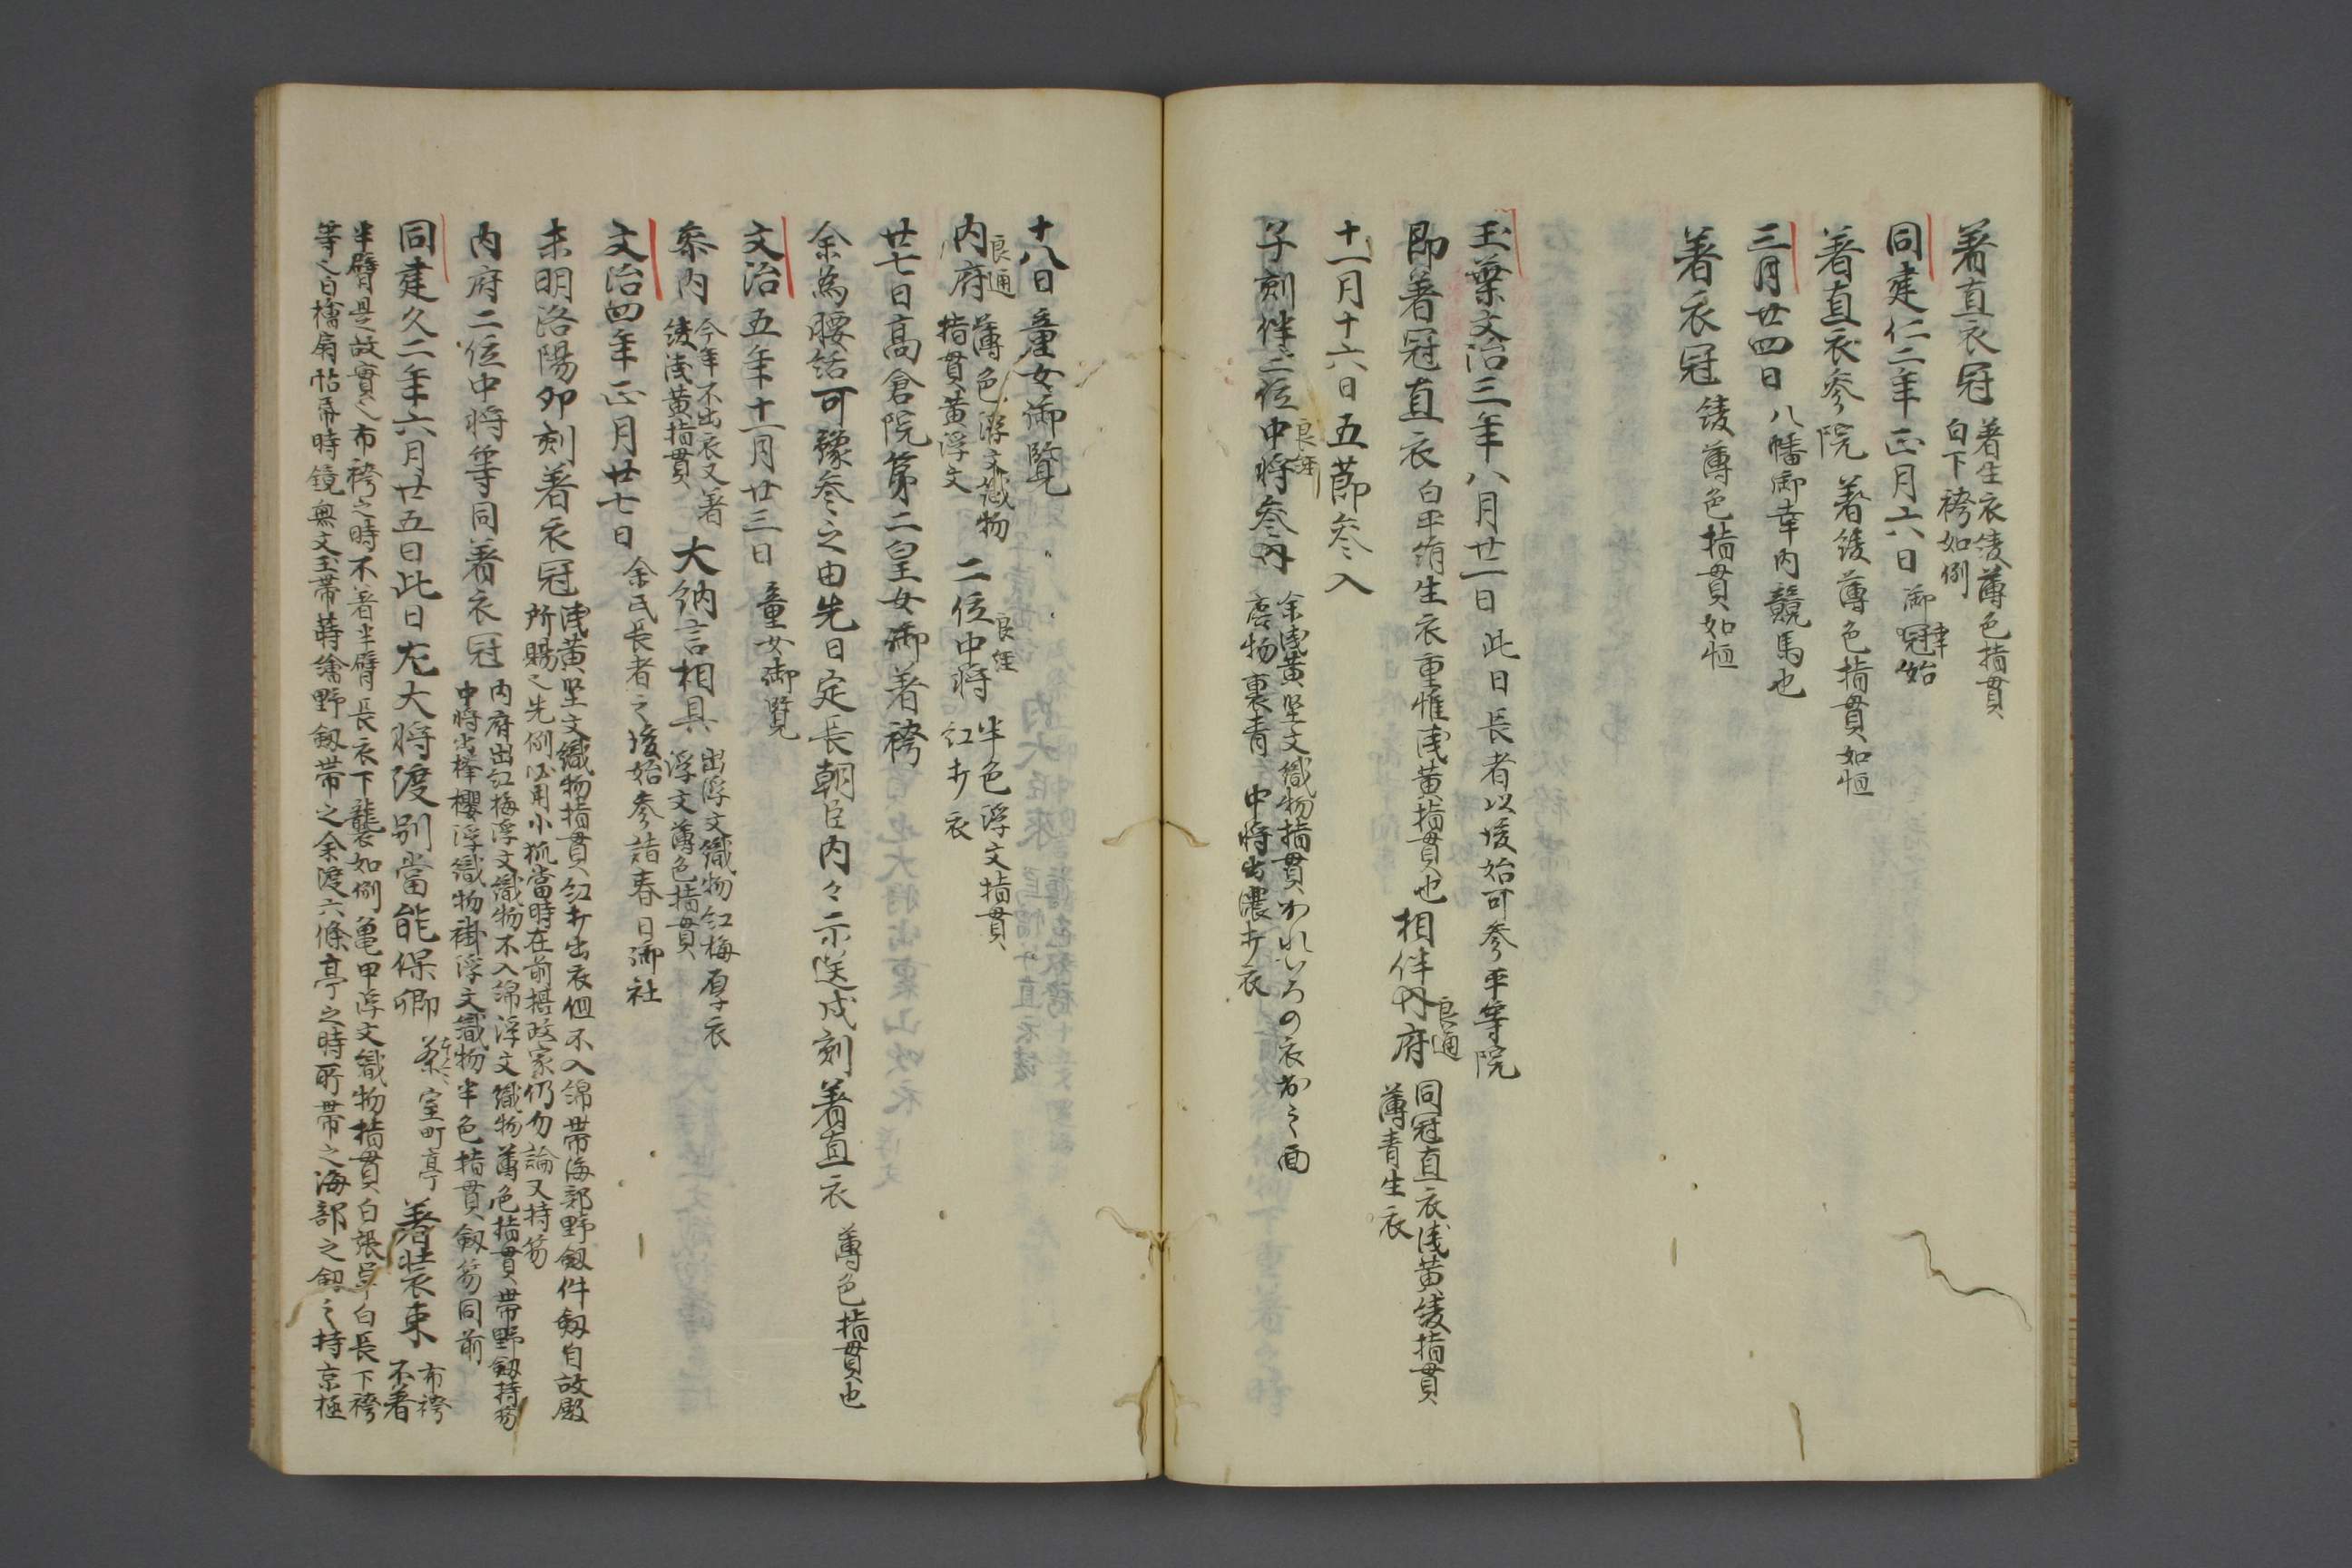 著直衣冠 著生衣綾薄色指貫
白下袴如例
同建仁二年正月六日 御幸始
著直衣参院 著綾薄色指貫如恒
三月廿四日 八幡御幸内競馬也
著衣冠 綾薄色指貫如恒
玉葉文治三年八月廿一日 此日長者以後始可参平等院
即著冠直衣 白平絹生衣重帷浅黄指貫也 相伴内府 良通 同冠直衣浅黄綾指貫
薄青生衣
十一月十六日五節参入
子刻伴二位中将 良経 参内 余浅黄堅文織物指貫われいろの衣おもて面
唐物裏青 中将出濃打衣
十八日童女御覧
内府 良通 薄色浮文織物
指貫黄浮文 二位中将 良経 半色浮文指貫
紅打衣
廿七日高倉院第二皇女御著袴
余為腰結可豫参之由先日定長朝臣内々示送戌刻著直衣 薄色指貫也
文治五年十一月廿三日 童女御覧
参内 今年不出衣又著
綾浅黄指貫 大納言相具 出浮文織物紅梅厚衣
浮文薄色指貫
文治四年正月廿七日 余氏長者之後始参詣春日御社
未明洛陽卯刻著衣冠 浅黄堅文織物指貫紅打出衣但不入綿帯海部野劔件劔自故殿
所賜之先例必用小狐當時在前摂政家仍勿論又持笏
内府二位中将等同著衣冠 内府出紅梅浮文織物不入綿浮文織物薄色指貫帯野劔持笏
中将出樺櫻浮織物衵浮文織物半色指貫劔笏同前
同建久二年六月廿五日此日左大将渡別當能保卿 室町亭 著装束 布袴
不著
半臂是故實也布袴之時不著半臂長衣下襲如例亀甲浮文織物指貫白張単白長下袴
等之白檜扇帖帋時鏡無文玉帯蒔繪野劔帯之余渡六條亭之時所帯之海部之劔之持京極